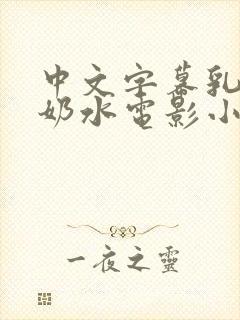 中文字幕乳
奶水电影小
一夜之靈